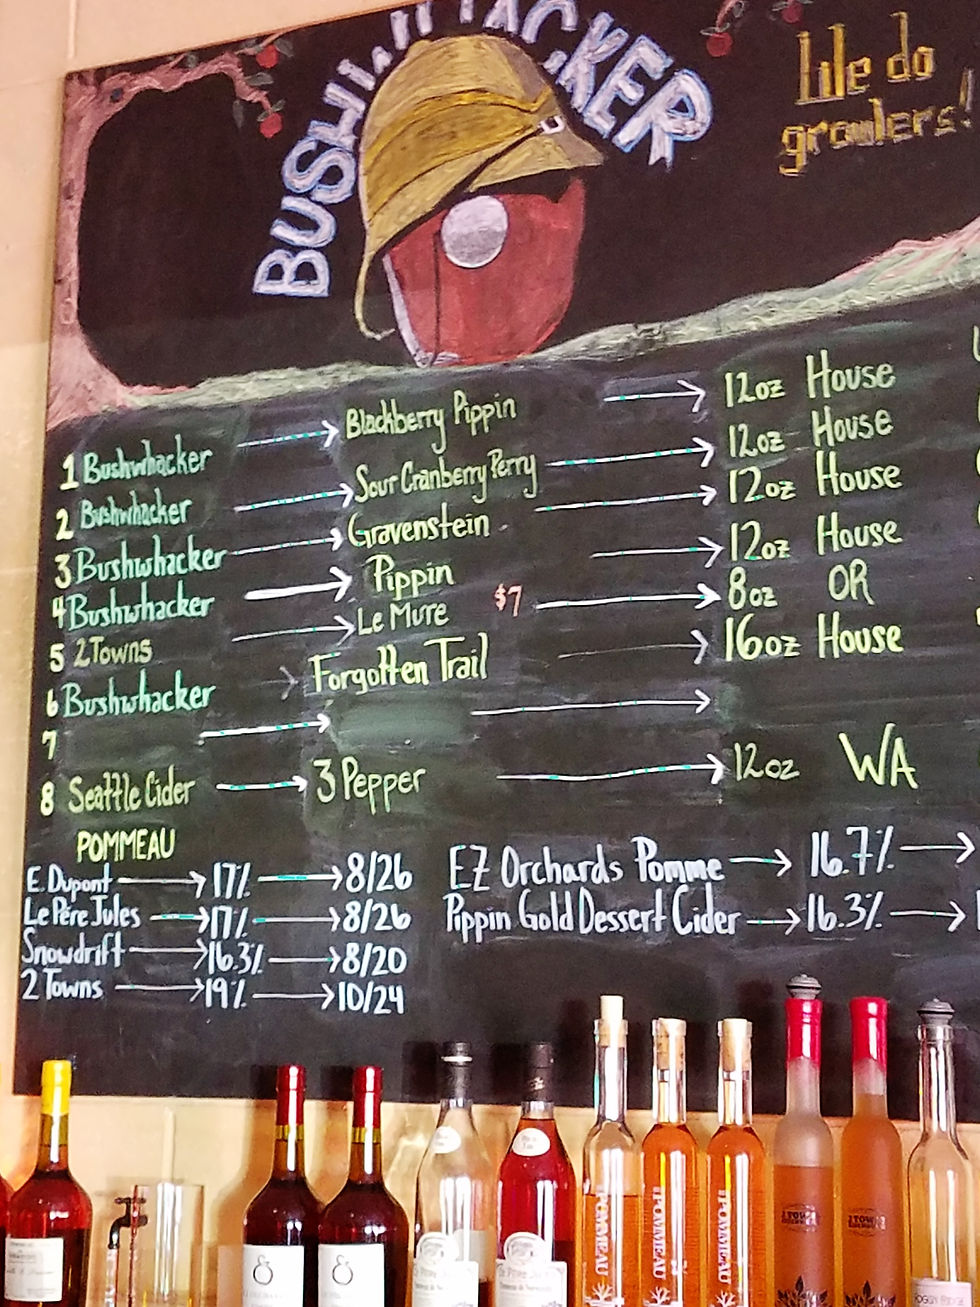 BUSHWHACKER
We do
growlers!
1 Bushwhacker → Blackberry Pippin → 12oz House
2 Bushwhacker → Sour Cranberry Perry → 12oz House
3 Bushwhacker → Gravenstein → 12oz House
4 Bushwhacker → Pippin → 12oz House
5 2Towns → Le Mure $7 → 8oz OR
6 Bushwhacker → Forgotten Trail → 16oz House
7 → →
8 Seattle Cider → 3 Pepper → 12oz WA
POMMEAU
E. Dupont → 17% → 8/26
Le Père Jules → 17% → 8/26
Snowdrift → 16.3% → 8/20
2 Towns → 19% → 10/24
EZ Orchards Pomme → 16.7% →
Pippin Gold Dessert Cider → 16.3% →
POMMEAU
POMMEAU
POMMEAU
2 TOWNS
2 TOWNS